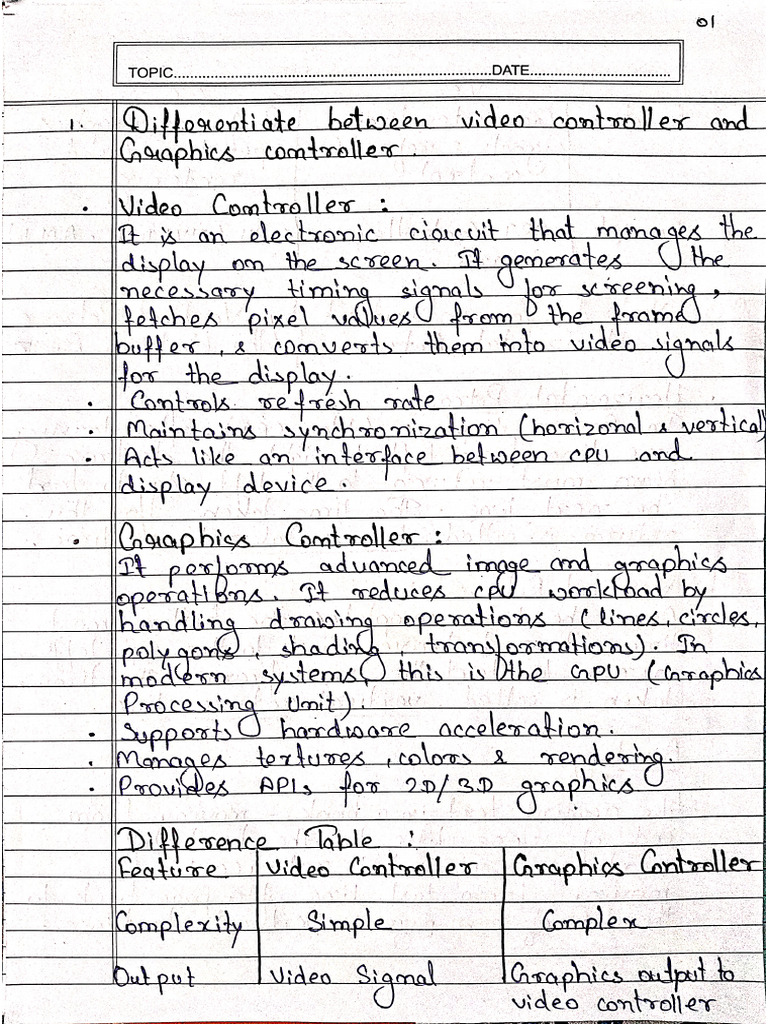 01
TOPIC..........DATE..........
1. Differentiate between video controller and
Graphics controller.
• Video Controller :
It is an electronic circuit that manages the
display on the screen. It generates the
necessary timing signals for screening,
fetches pixel values from the frame
buffer, & converts them into video signals
for the display.
• Controls refresh rate
• Maintains synchronization (horizonal & vertical)
• Acts like an interface between CPU and
display device.
• Graphics Controller :
It performs advanced image and graphics
operations. It reduces CPU workload by
handling drawing operations (lines, circles,
polygons, shading, transformations). In
modern systems, this is the GPU (Graphics
Processing Unit).
• Supports hardware acceleration.
• Manages textures, colors & rendering.
• Provides APIs for 2D/3D graphics
Difference Table :
Feature | Video Controller | Graphics Controller
Complexity | Simple | Complex
Output | Video Signal | Graphics output to
video controller